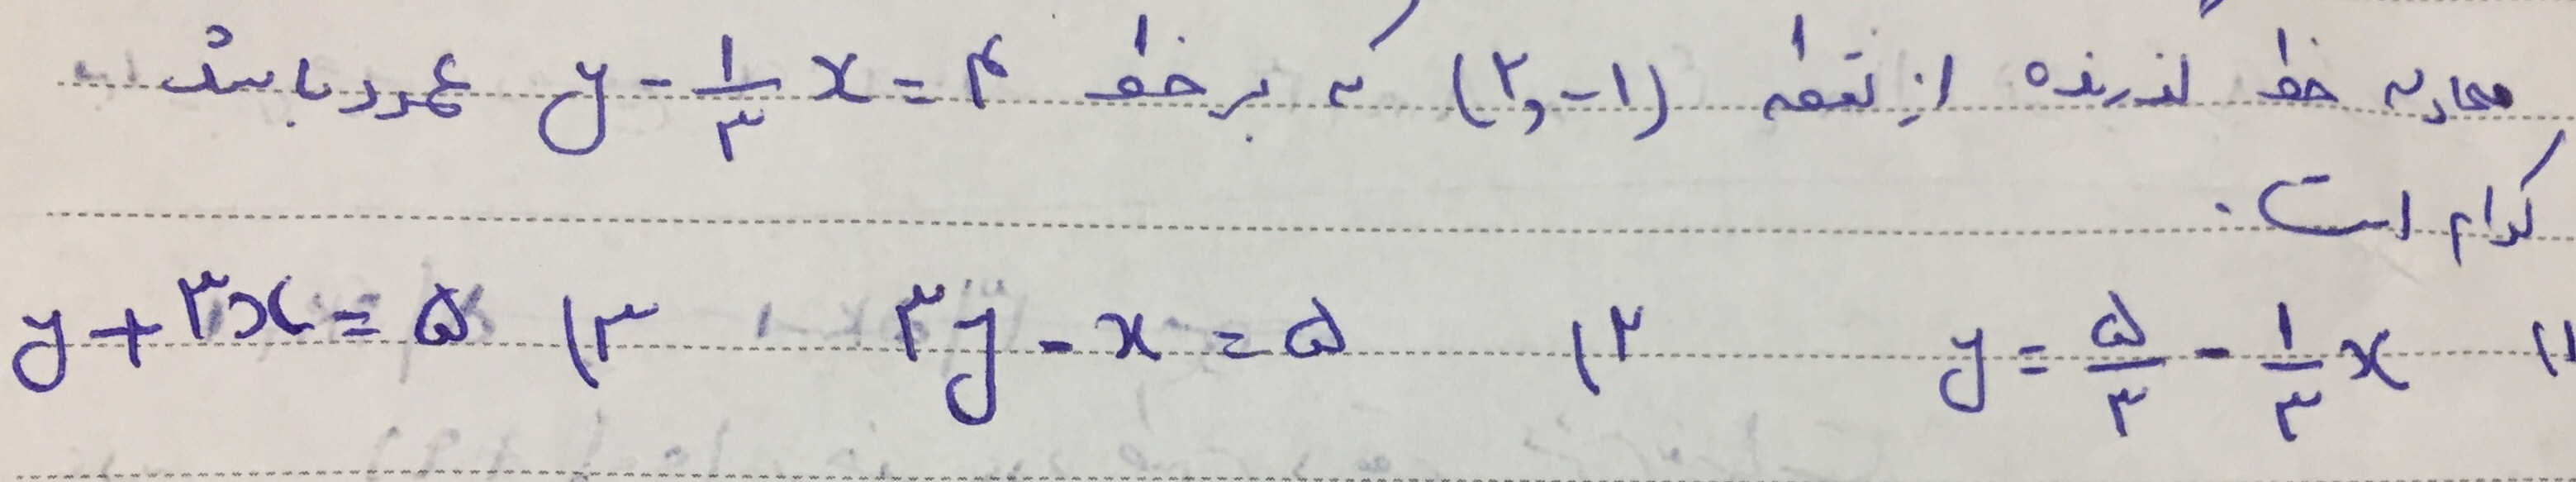 معادله خط گذرنده از نقطه (۲,-۱) که بر خط y - ۱/۳ x = ۴ عمود باشد
کدام است.
۱) y = ۵/۳ - ۱/۳ x ۲) ۳y - x = ۵ ۳) y + ۳x = ۵